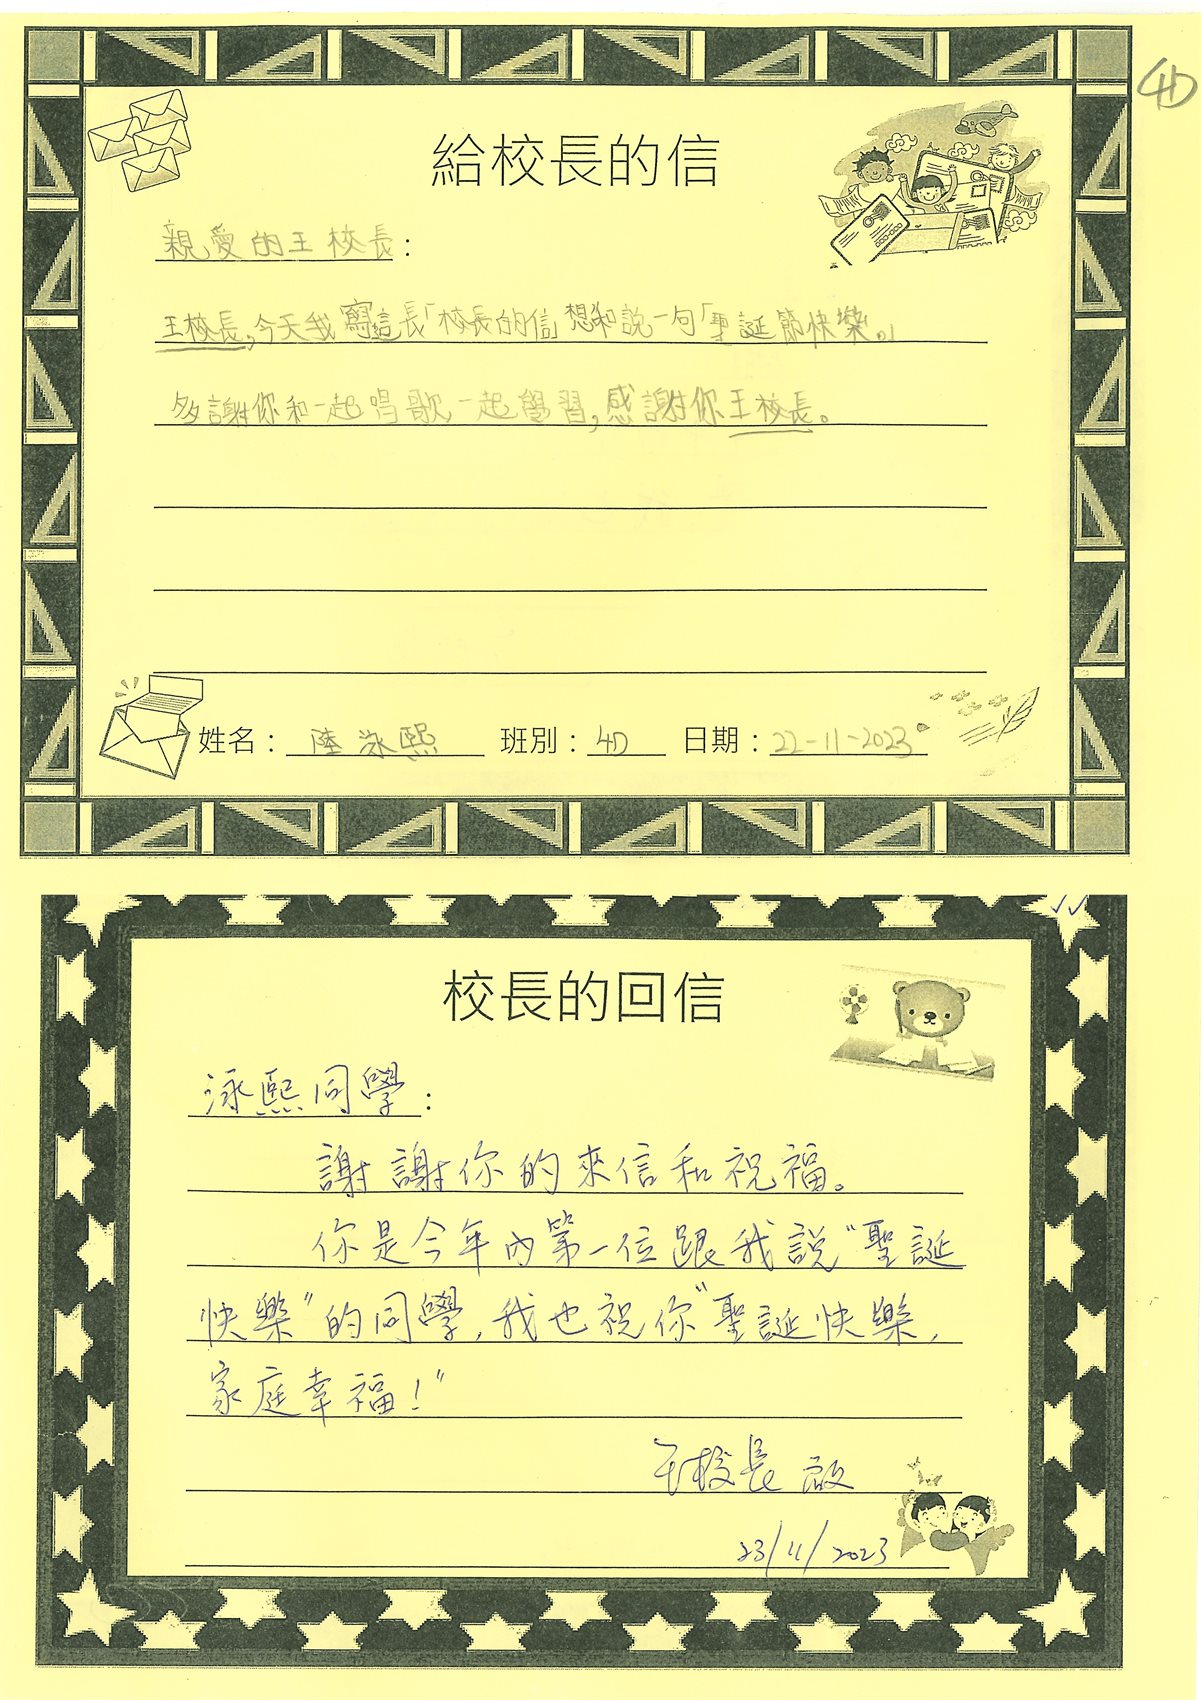 4D
給校長的信
親愛的王校長：
王校長，今天我寫這長「校長的信」想和說一句「聖誕節快樂。」
多謝你和一起唱歌一起學習，感謝你王校長。
姓名：陸泳熙 班別：4D 日期：22-11-2023
校長的回信
泳熙同學：
謝謝你的來信和祝福。
你是今年內第一位跟我說"聖誕
快樂"的同學，我也祝你"聖誕快樂，
家庭幸福！"
王校長 啟
23/11/2023